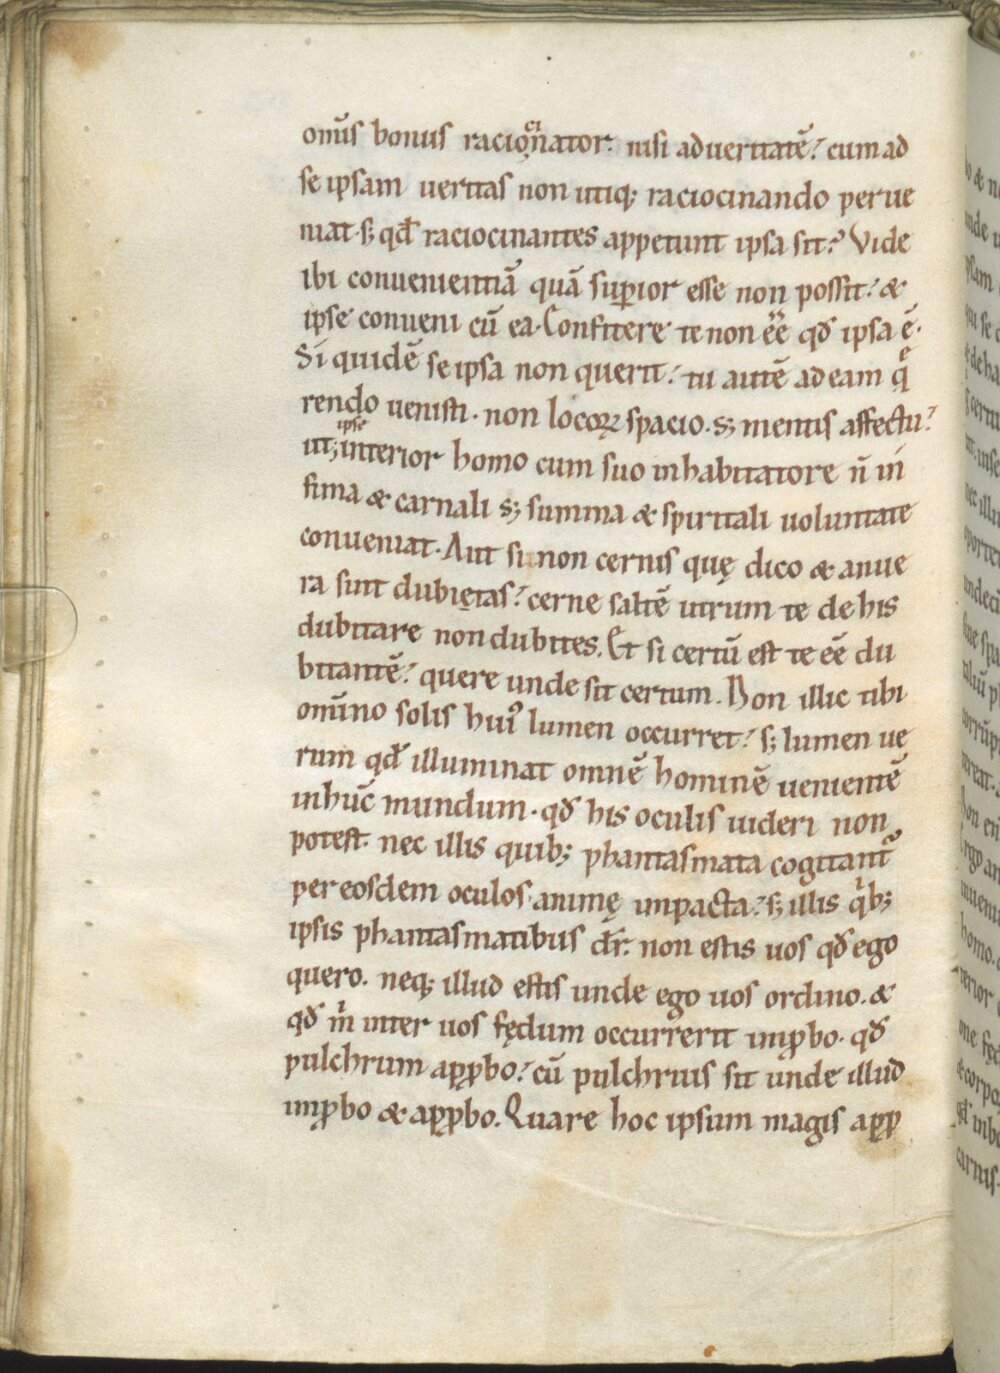 omīs bonus racioͨinator. nisi ad ueritatē? cum ad
se ipsam ueritas non utiq; raciocinando perue
niat. s; qđ raciocinantes appetunt ipsa sit? Vide
ibi conuenientiā quā supior esse non possit? &
ipse conueni cū ea. Confitere te non ēē qđ ipsa ē.
Si quidē se ipsa non querit? tu autē ad eam q̄
rendo uenisti. non locoꝝ spacio. s; mentis affectu?
ut; ipse interior homo cum suo inhabitatore n̄ in
fima & carnali s; summa & spiritali uoluntate
conueniat. Aut si non cernis quę dico & an ue
ra sint dubietas? cerne saltē utrum te de his
dubitare non dubites. Et si certū est te ēē du
bitantē? quere unde sit certum. Non illic tibi
omīno solis huiꝰ lumen occurret? s; lumen ue
rum qđ illuminat omnē hominē uenientē
in hūc mundum. qđ his oculis uideri non
potest. nec illis quib; phantasmata cogitantᷣ
per eosdem oculos animę impacta? s; illis qͥb;
ipsis phantasmatibus dr̄. non estis uos qđ ego
quero. neq; illud estis unde ego uos ordino. &
qđ m̊ inter uos fędum occurrerit imꝓbo. qđ
pulchrum apꝓbo? cū pulchrius sit unde illud
imꝓbo & apꝓbo. Quare hoc ipsum magis apꝓ